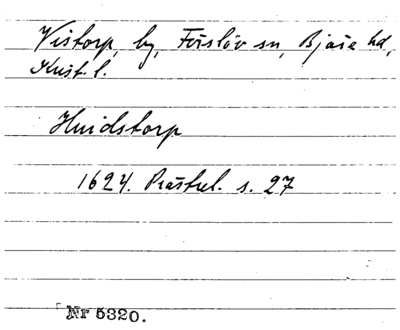 Vistorp, by, Förslöv sn, Bjäre hd,
Krist. l.
Hvidstorp
1624. Prästrel. s. 27
Nr 5320.